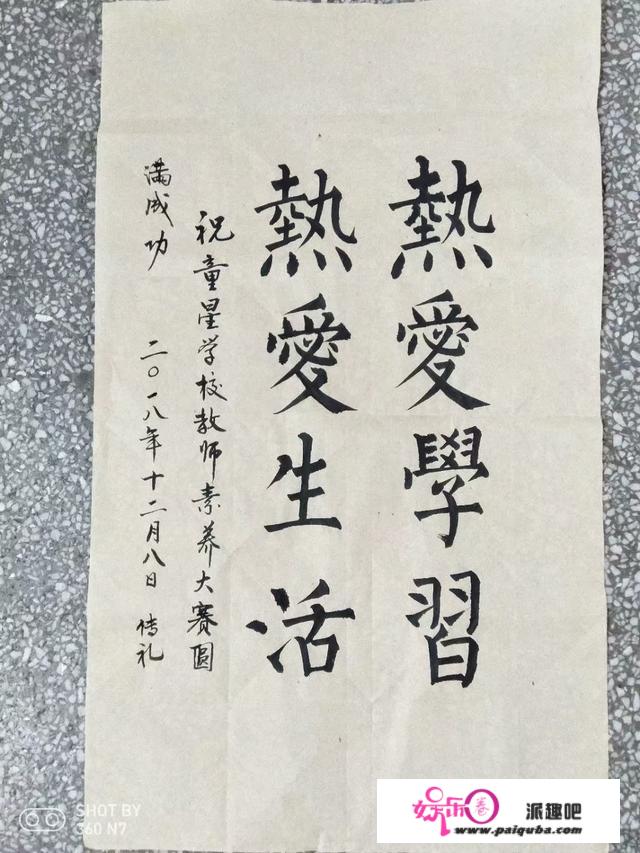 熱愛學習
熱愛生活
祝童星学校教师素养大赛圆
满成功 二〇一八年十二月八日 传礼
SHOT BY
360 N7
娱乐卷 派趣吧
www.paiquba.com